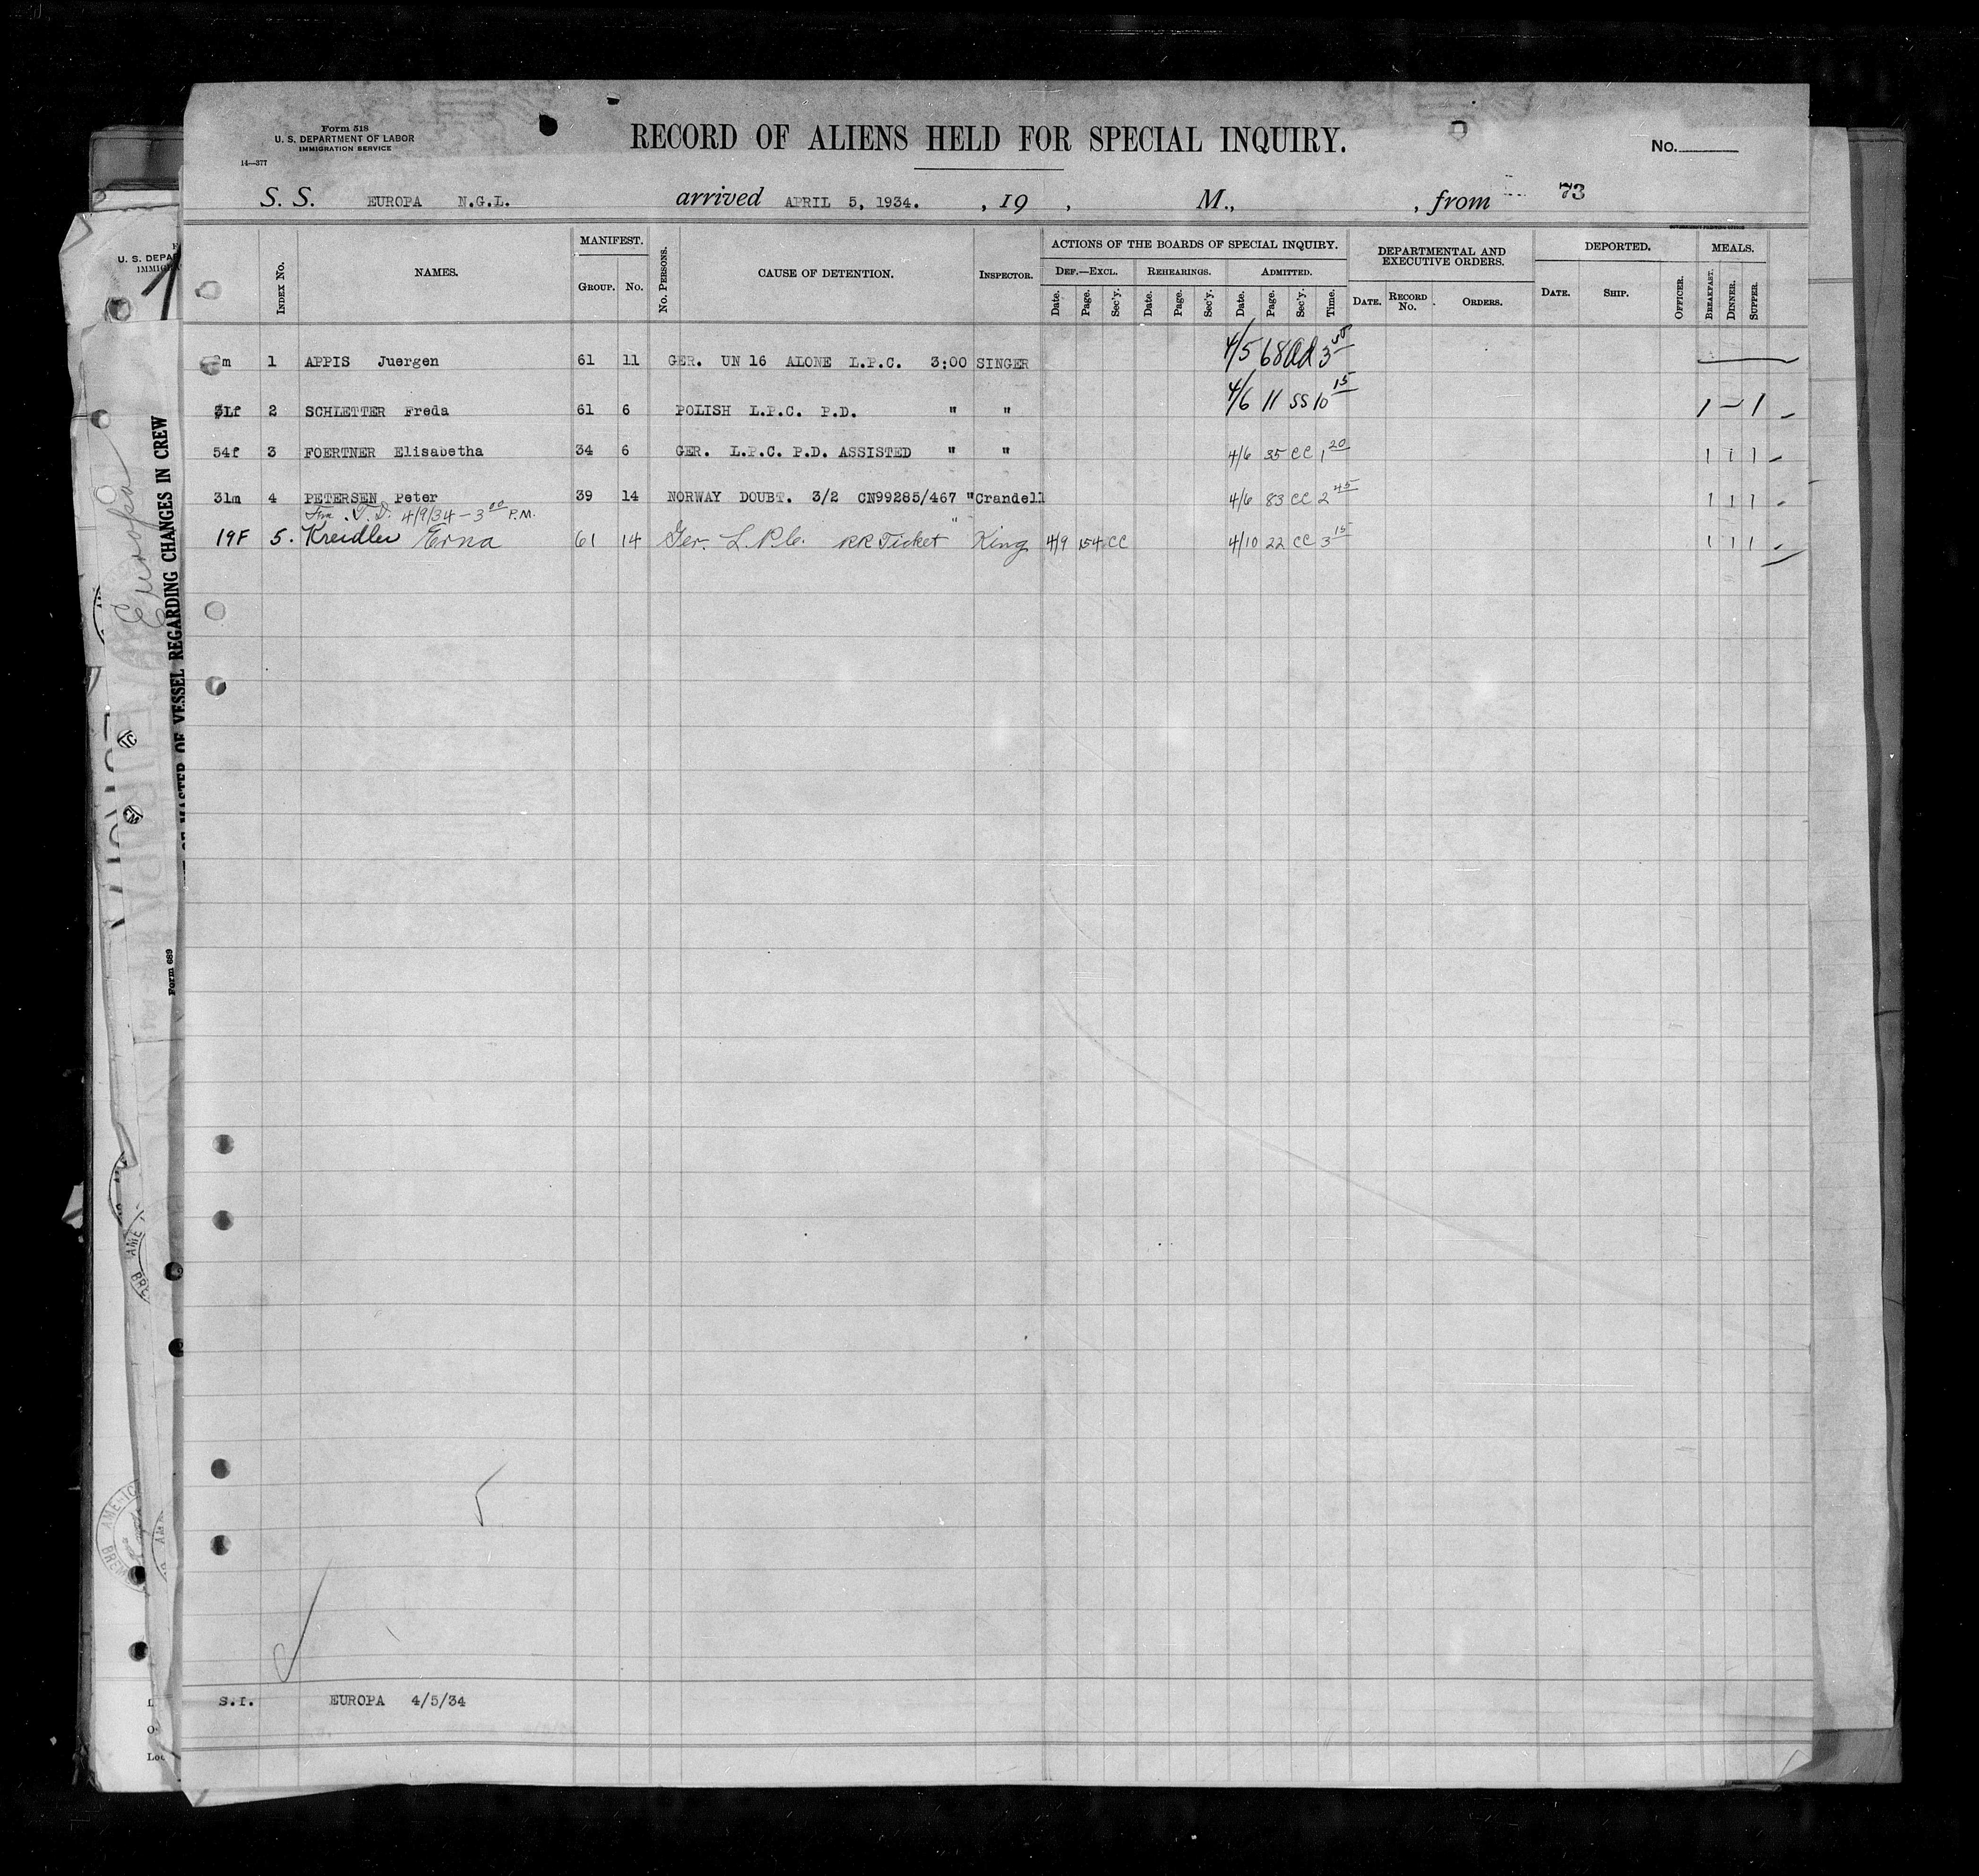 Form 518
U. S. DEPARTMENT OF LABOR
IMMIGRATION SERVICE
14—377
RECORD OF ALIENS HELD FOR SPECIAL INQUIRY.
No.
S. S. EUROPA N.G.L. arrived APRIL 5, 1934. , 19 , M., , from 73
GOVERNMENT PRINTING OFFICE
Index No. NAMES. MANIFEST. Group. No. No. Persons. CAUSE OF DETENTION. Inspector. ACTIONS OF THE BOARDS OF SPECIAL INQUIRY. DEPARTMENTAL AND EXECUTIVE ORDERS. DEPORTED. MEALS.
Def.—Excl. Rehearings. Admitted.
Date. Page. Sec'y. Date. Page. Sec'y. Date. Page. Sec'y. Time. Date. Record No. Orders. Date. Ship. Officer. Breakfast. Dinner. Supper.
m 1 APPIS Juergen 61 11 GER. UN 16 ALONE L.P.C. 3:00 SINGER 4/5 68 ad 3 50
3Lf 2 SCHLETTER Freda 61 6 POLISH L.P.C. P.D. " " 4/6 11 SS 10 15 1 – 1
54f 3 FOERTNER Elisabetha 34 6 GER. L.P.C. P.D. ASSISTED " " 4/6 35 CC 1 20 1 1 1
31m 4 PETERSEN Peter 39 14 NORWAY DOUBT. 3/2 CN99285/467 " Crandell 4/6 83 CC 2 45 1 1 1
T.D. 4/9/34 – 3 00 P.M.
19F 5. Kreidler Erna 61 14 Ger. L.P.C. RR Ticket " King 4/9 154 CC 4/10 22 CC 3 15 1 1 1
S.I. EUROPA 4/5/34
U. S. DEPA
IMMIGRA
Europa
OF MASTER OF VESSEL REGARDING CHANGES IN CREW
Form 689